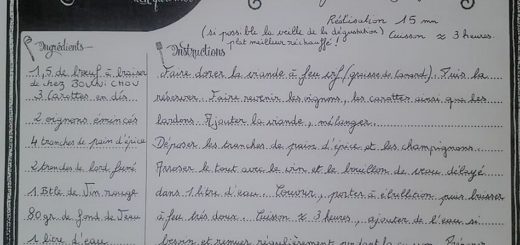 Réalisation 15 mn
(si possible la veille de la dégustation) Cuisson ≈ 3 heures
plat meilleur réchauffé !
Ingrédients
Instructions
1,5 de bœuf à braiser
de chez
3 Carottes en dés
2 oignons émincés
4 tranches de pain d'épice
2 tranches de lard fumé
1 Btle de Vin rouge
80 gr de fond de Veau
1 litre d'eau
Faire dorer la viande à feu vif (graisse de Canard). Puis la
réserver. Faire revenir les oignons, les carottes ainsi que les
lardons. Ajouter la viande, mélanger.
Déposer les tranches de pain d'épice et les champignons.
Arroser le tout avec le vin et le bouillon de veau délayé
dans 1 litre d'eau. Couvrir, porter à ébullition puis baisser
à feu très doux. Cuisson ≈ 3 heures, ajouter de l'eau si
besoin et remuer régulièrement